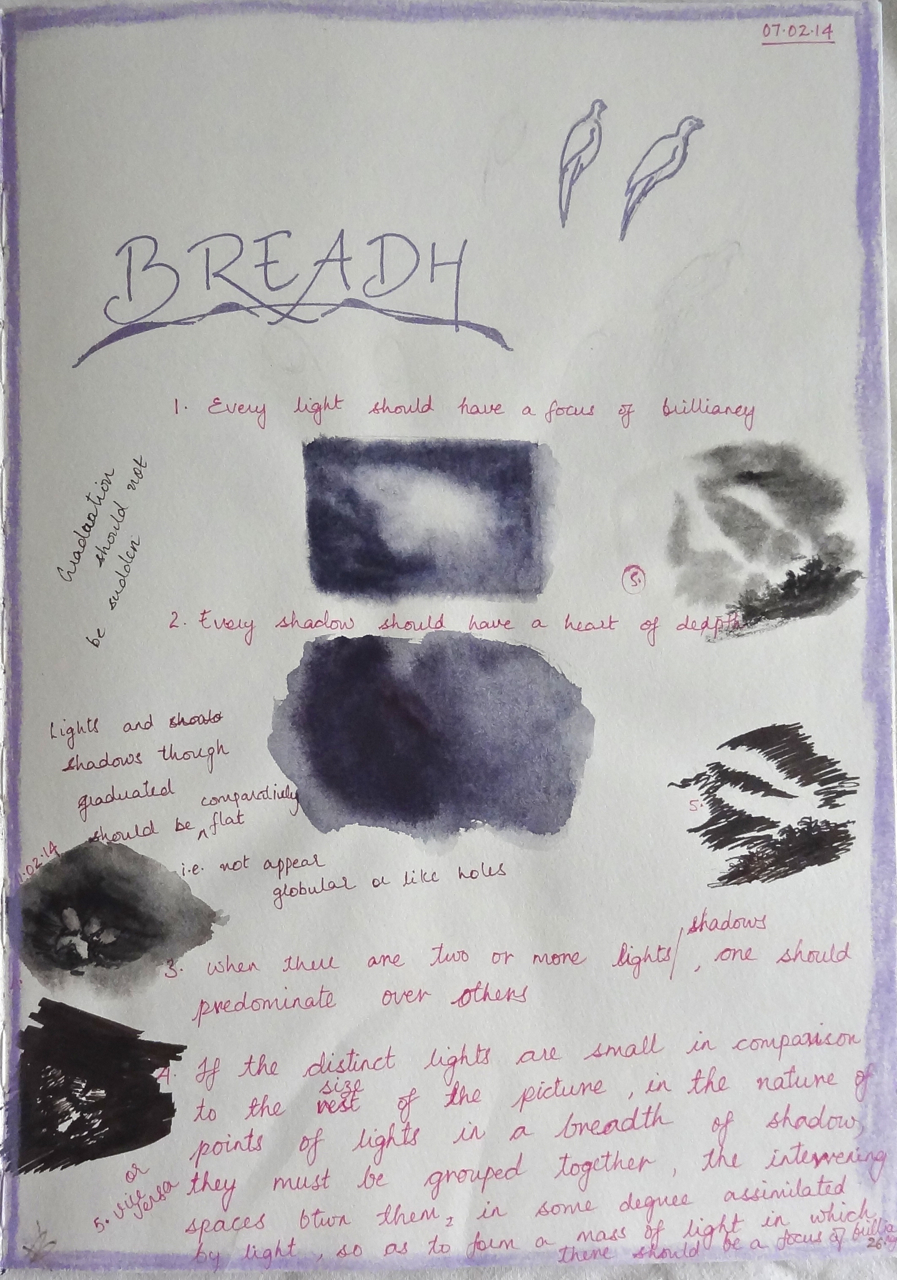 07.02.14
BREADH
1. Every light should have a focus of brillianey
Gradation
should not
be sudden
5.
2. Every shadow should have a heart of dedpth
Lights and shoato
shadows though
graduated comparitively
should be ^ flat
i.e. not appear
globular or like holes
5.
.02.14
3. When there are two or more lights/shadows, one should
predominate over others
4. If the distinct lights are small in comparison
to the rest size of the picture, in the nature of
points of lights in a breadth of shadow,
they must be grouped together, the intervening
spaces btwn them, in some degree assimilated
by light, so as to form a mass of light in which
there should be a focus of brillia
or
5. vice versa